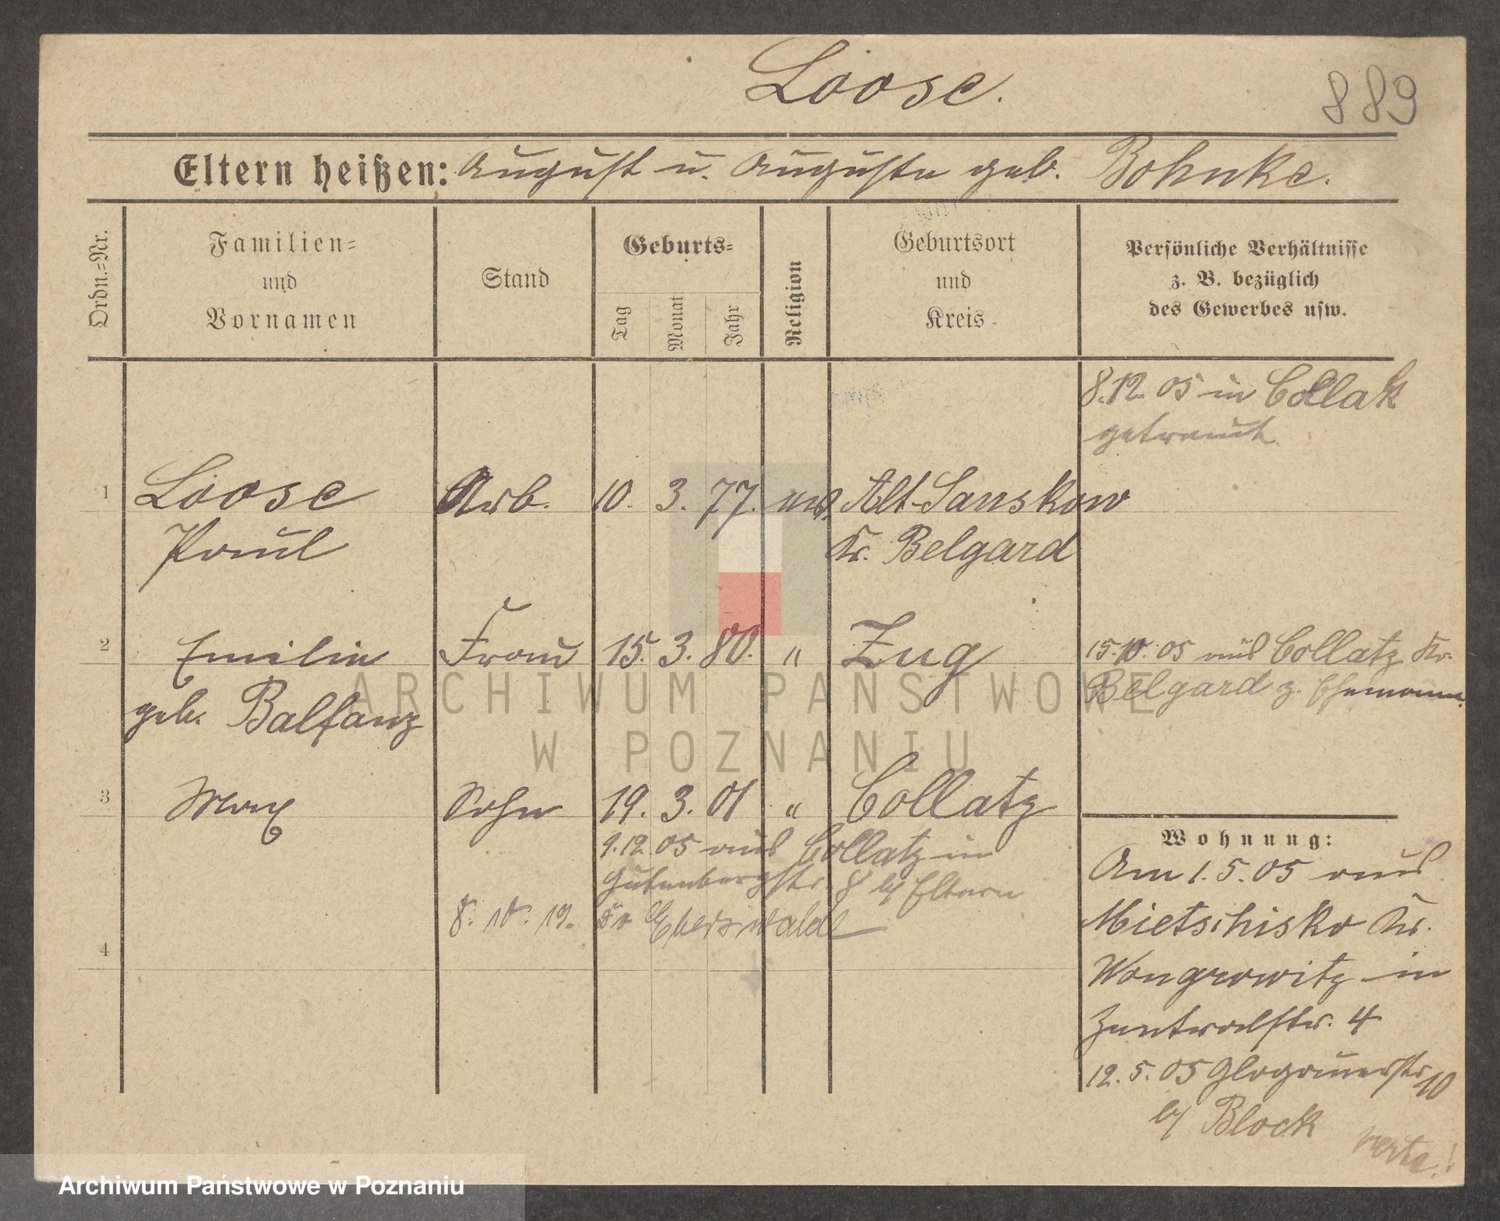 Loose.
889
Eltern heißen: August u. Auguste geb. Bohnke.
Ordn.=Nr.
Familien=
und
Vornamen
Stand
Geburts=
Tag
Monat
Jahr
Religion
Geburtsort
und
Kreis
Persönliche Verhältnisse
z. B. bezüglich
des Gewerbes usw.
8.12.05 in Collatz
getraut.
1 Loose Arb. 10. 3. 77. Alt-Sanskow
Paul Kr. Belgard
2 Emilie Frau 15. 3. 80. " Zug
geb. Balfanz
15.10.05 aus Collatz Kr.
Belgard z. Ehemann.
3 Max Sohn 19. 3. 01 " Collatz
9.12.05 aus Collatz in
Gutenbergstr 8 b/ Eltern
8. 10. 19. Eberswalde
4
Wohnung:
Am 1.5.05 aus
Mietschisko Kr.
Wongrowitz in
Zentralstr. 4
12.5.05 Glogauerstr 10
b/ Block
verte!
ARCHIWUM PAŃSTWOWE
W POZNANIU
Archiwum Państwowe w Poznaniu